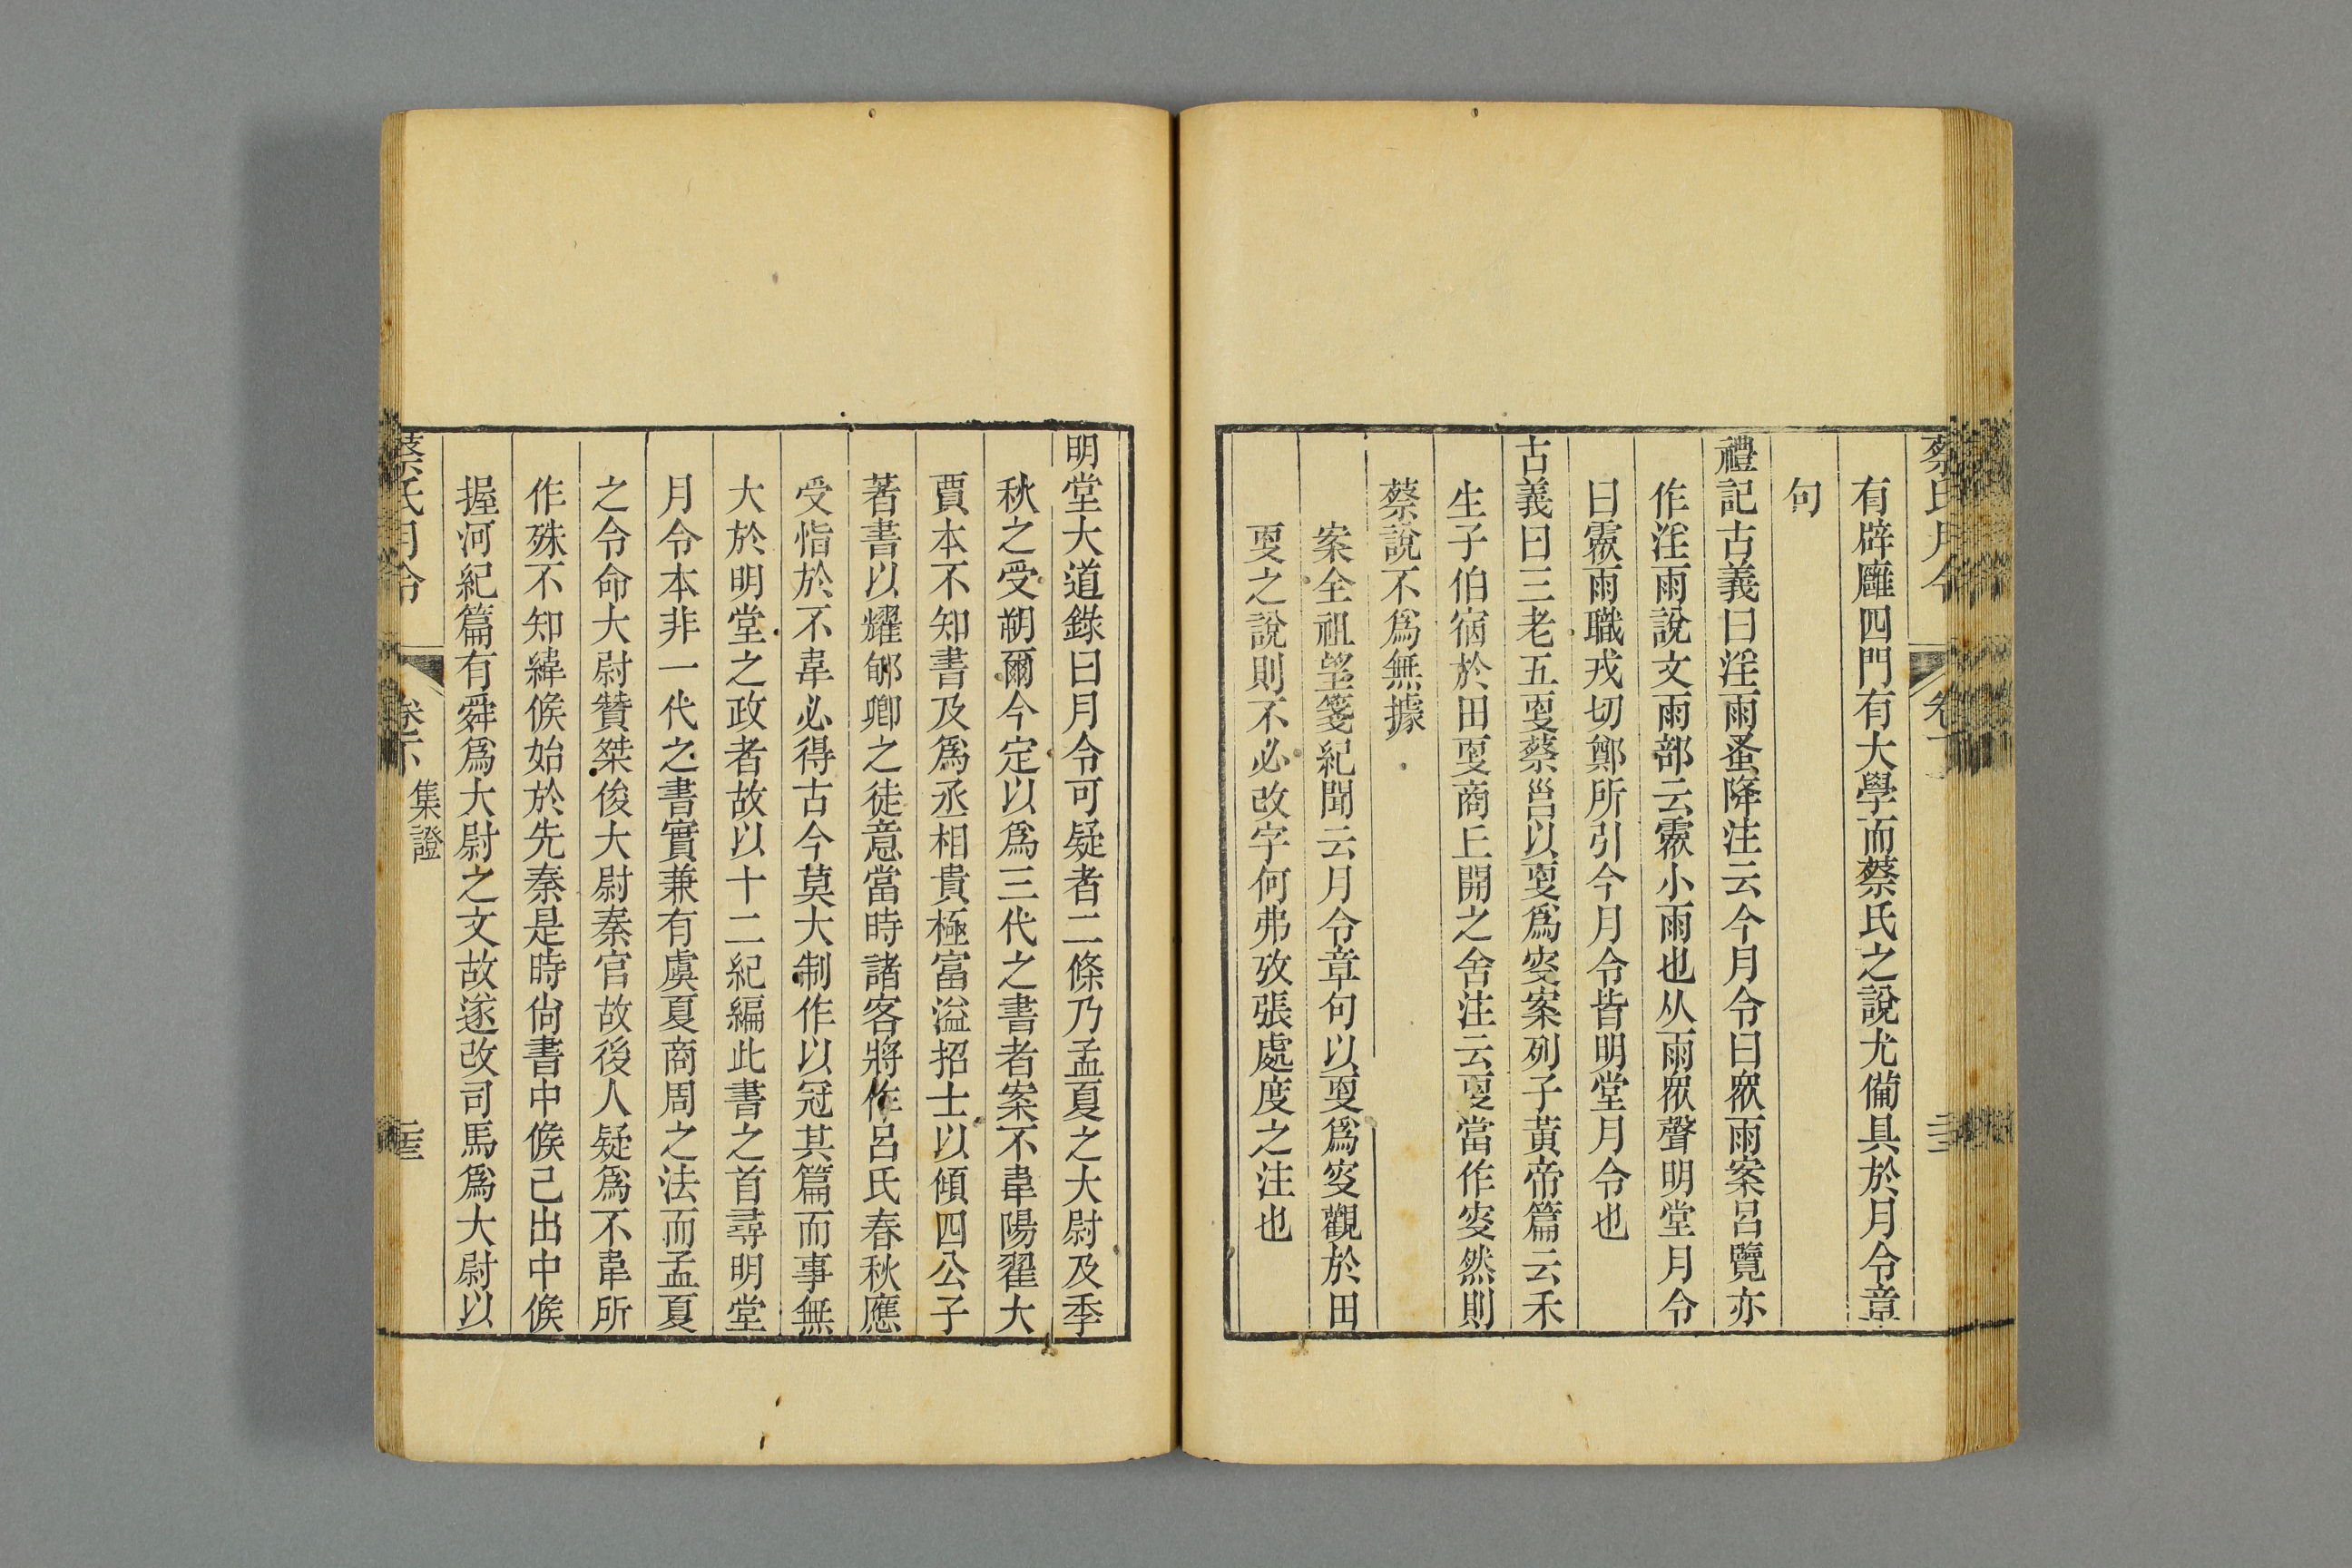 蔡氏月令 卷
有辟廱四門有大學而蔡氏之說尤備具於月令章
句
禮記古義曰淫雨蚤降注云今月令曰䨟雨案呂覽亦
作淫雨說文雨部云䨟小雨也从雨眾聲明堂月令
曰䨟雨職戎切鄭所引今月令皆明堂月令也
古義曰三老五叟蔡邕以叟爲叜案列子黃帝篇云禾
生子伯宿於田叟商丘開之舍注云叟當作叜然則
蔡說不爲無據
案全祖望箋紀聞云月令章句以叟爲叜觀於田
叟之說則不必改字何弗攷張處度之注也
明堂大道錄曰月令可疑者二條乃孟夏之大尉及季
秋之受朔爾今定以爲三代之書者案不韋陽翟大
賈本不知書及爲丞相貴極富溢招士以傾四公子
著書以耀郇卿之徒意當時諸客將作呂氏春秋應
受恉於不韋必得古今莫大制作以冠其篇而事無
大於明堂之政者故以十二紀編此書之首尋明堂
月令本非一代之書實兼有虞夏商周之法而孟夏
之令命大尉贊桀俊大尉秦官故後人疑爲不韋所
作殊不知緯候始於先秦是時尙書中候已出中候
握河紀篇有舜爲大尉之文故遂改司馬爲大尉以
蔡氏月令 卷下 集證